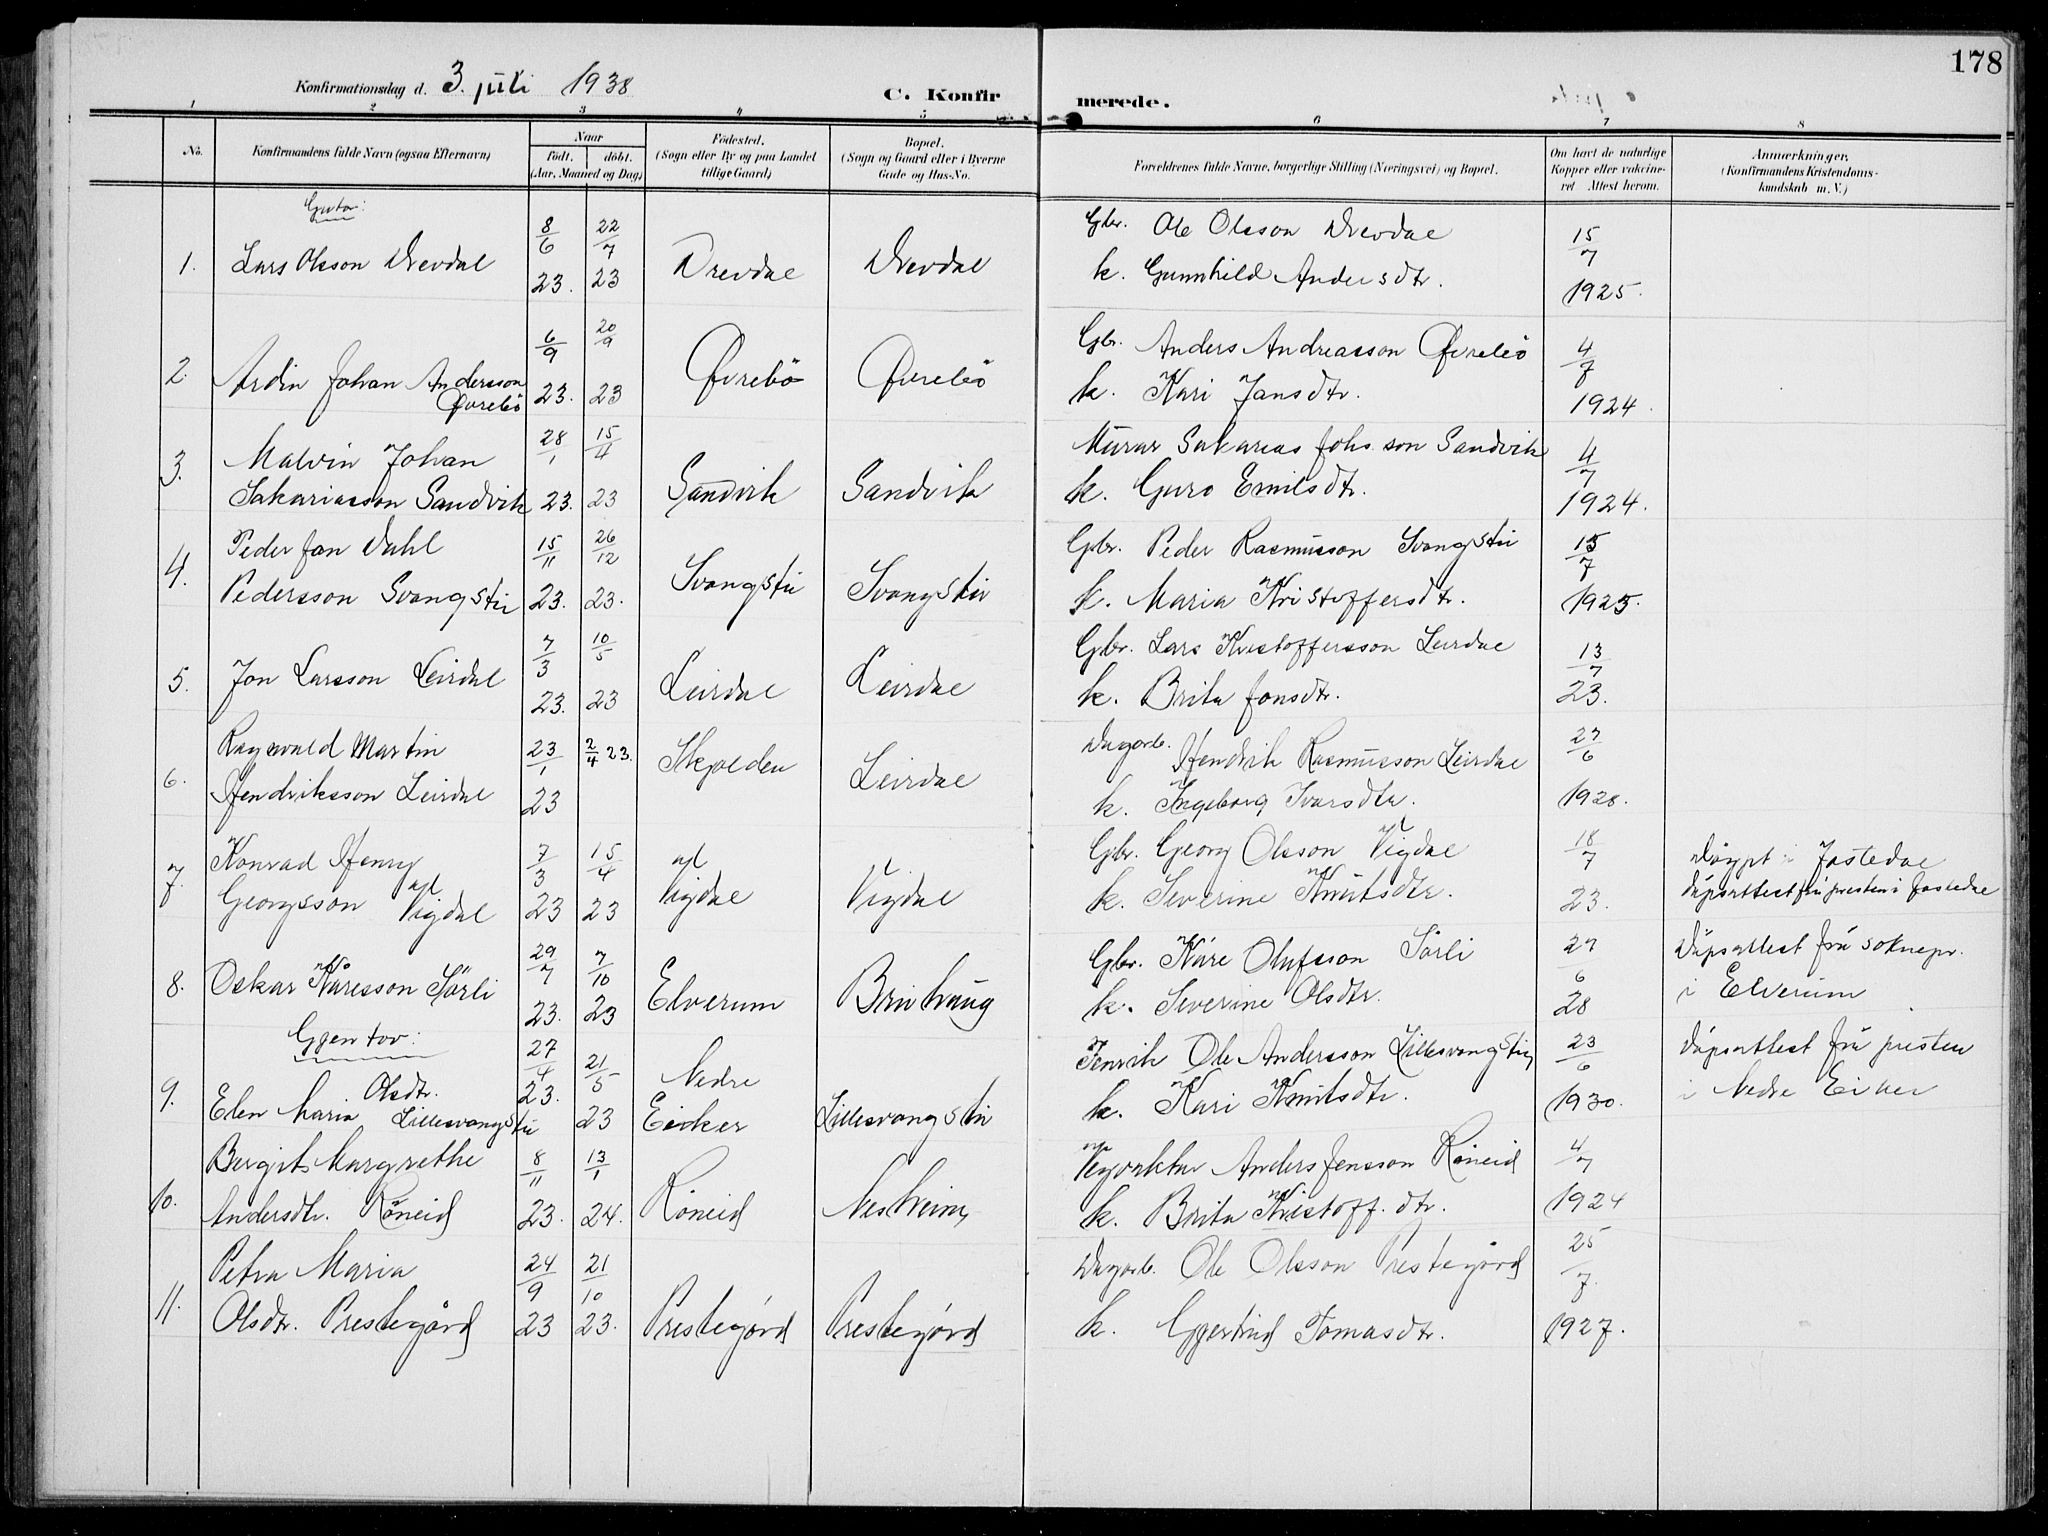 178
Konfirmationsdag d. 3. juli 1938
C. Konfirmerede.
1 2 3 4 5 6 7 8
No.
Konfirmandens fulde Navn (ogsaa Efternavn)
Naar
født. døbt.
(Aar, Maaned og Dag)
Födested.
(Sogn eller By og paa Landet
tillige Gaard)
Bopæl.
(Sogn og Gaard eller i Byerne
Gade og Hus-No.
Forældrenes fulde Navne, borgerlige Stilling (Næringsvei) og Bopæl.
Om havt de naturlige
Kopper eller vakcine-
ret Attest herom.
Anmærkninger,
(Konfirmandens Kristendoms-
kundskab m. V.)
Gutar:
1. Lars Olsson Drevdal 8/6 23. 22/7 23 Drevdal Drevdal Gbr. Ole Olsson Drevdal
k. Gunnhild Andersdtr. 15/7 1925.
2. Ardin Johan Andersson
Øvrebö 6/9 23. 20/9 23 Øvrebö Øvrebö Gbr. Anders Andreasson Øvrebö
k. Kari Jansdtr. 4/7 1924.
3. Malvin Johan
Sakariasson Sandvik 28/1 23. 15/4 23 Sandvik Sandvik Murar Sakarias Johs.son Sandvik
k. Guro Emilsdtr. 4/7 1924.
4. Peder Jan Dahl
Pedersson Svangstu 15/11 23. 26/12 23. Svangstu Svangstu Gbr. Peder Rasmusson Svangstu
k. Maria Kristoffersdtr. 15/7 1925.
5. Jon Larsson Leirdal 7/3 23. 10/5 23 Leirdal Leirdal Gbr. Lars Kristoffersson Leirdal
k. Brita Jonsdtr. 13/7 23.
6. Ragnvald Martin
Hendriksson Leirdal 23/1 23 2/4 23. Skjolden Leirdal Dagarb. Hendrik Rasmusson Leirdal
k. Ingeborg Ivarsdtr. 27/6 1928.
7. Konrad Henry
Georgsson Vigdal 7/3 23 15/4 23 Vigdal Vigdal Gbr. Georg Olsson Vigdal
k. Severine Knutsdtr. 18/7 23. Døypt i Jostedal
Dåpsattest frå presten i Jostedal
8. Oskar Kåresson Sörli 29/7 23. 7/10 23 Elverum Brinhaug Gbr. Kåre Olufsson Sörli
k. Severine Olsdtr. 27/6 28 Dåpsattest frå soknepr.
i Elverum
Gjentor:
9. Elen Maria Olsdtr.
Lillesvangstu 27/4 23. 21/5 23 Nedre
Eicker Lillesvangstu Ole Andersson Lillesvangstu
k. Kari Knutsdtr. 23/6 1930. Dåpsattest frå presten
i Nedre Eiker
10. Bergit Margrethe
Andersdtr. Röneid 8/11 23. 13/1 24. Röneid Nesheim, Vegvaktar Anders Jensson Röneid
k. Brita Kristoff.dtr. 4/7 1924
11. Petra Maria
Olsdtr. Prestegård 24/9 23 21/10 23. Prestegård Prestegård Dagarb. Ole Olsson Prestegård
k. Gjertrud Tomasdtr. 25/7. 1927.